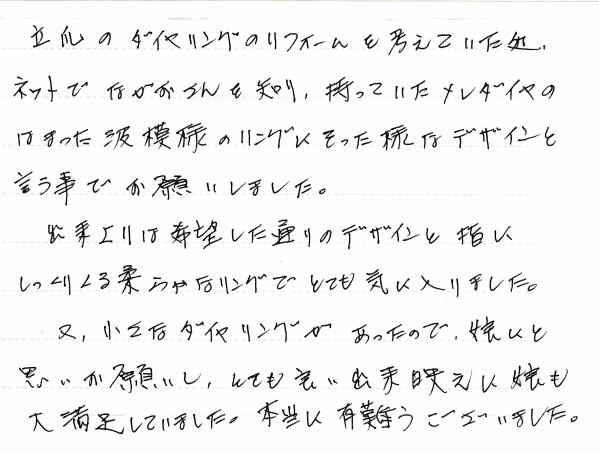 立爪のダイヤリングのリフォームを考えていた処、
ネットでながおさんを知り、持っていたメレダイヤの
はまった波模様のリングにそった様なデザインと
言う事でお願いしました。
出来上りは希望した通りのデザインと指に
しっくりくる柔らかなリングでとても気に入りました。
又、小さなダイヤリングがあったので、娘にと
思いお願いし、とても良い出来映えに娘も
大満足していました。本当に有難うございました。